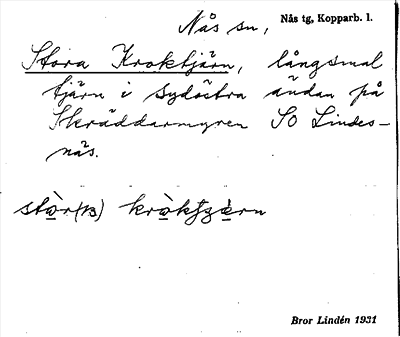 Nås sn, Nås tg, Kopparb. l.
Stora Kroktjärn, långsmal
tjärn i sydöstra ändan på
Skräddarmyren SO Lindes-
näs.
Bror Lindén 1931